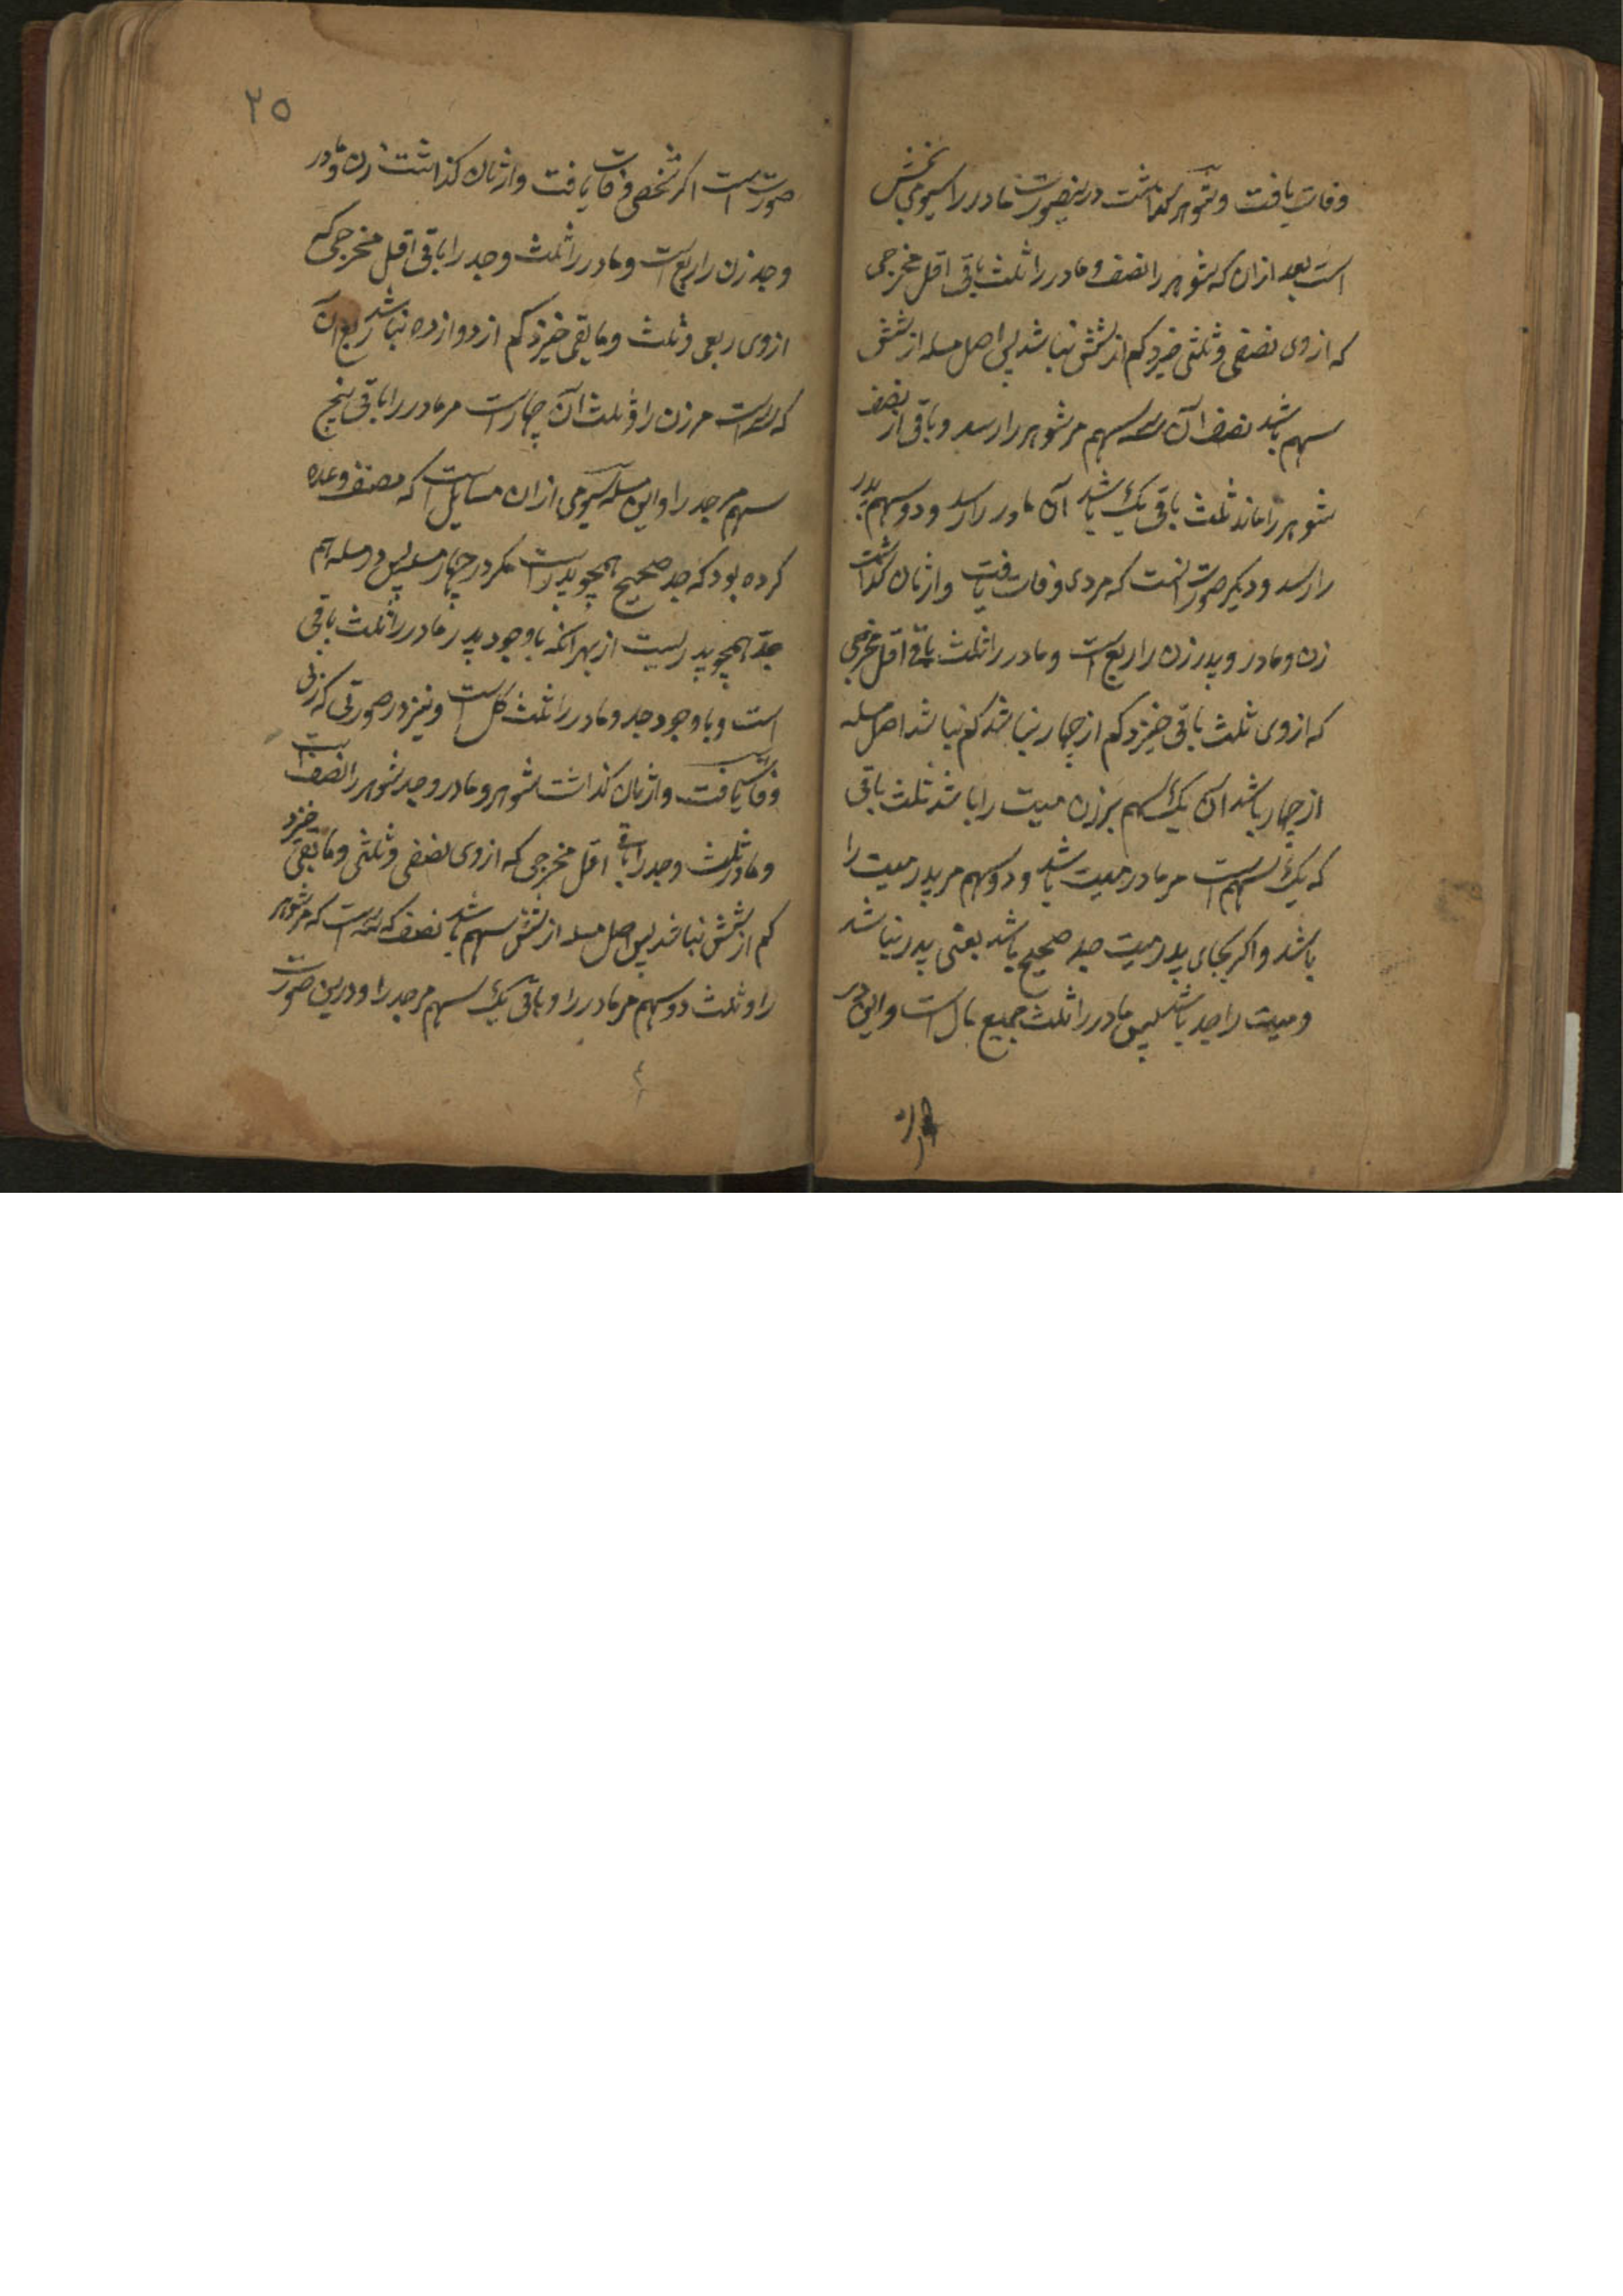 وفات یافت و شوهر گذاشت درینصورت مادر را سیومی بخش
است بعد ازان که شوهر را نصف و مادر را ثلث باقی اقل مخرجی
که ازوی نصفی و ثلثی خیزد کم از شش نباشد پس اصل مسله از شش
سهم باشد نصف آن سه سهم مر شوهر را رسد و باقی از نصف
شوهر را ماند ثلث باقی یک باشد آن مادر را رسد و دو سهم پدر
را رسد و دیکر صورت آنست که مردی وفات یافت و ازنان گذاشت
زن و مادر و پدر زن را ربع است و مادر را ثلث باقی اقل مخرجی
که ازوی ثلث باقی خیزد کم از چهار نباشد کم نباشد اصل مسله
از چهار باشد ازان یک سهم بر زن میت را باشد ثلث باقی
که یک سهم است مر مادر میت باشد و دو سهم مر پدر میت را
باشد و اکر بجای پدر میت جد صحیح باشد یعنی پدر نباشد
و میت را جد باشد پس مادر را ثلث جمیع مال است و این در
۲۵
صورت است اکر شخصی وفات یافت و ازنان کذاشت زن و مادر
و جد زن را ربع است و مادر را ثلث و جد را باقی اقل مخرجی که
ازوی ربعی و ثلث و مابقی خیزد کم از دوازده نباشد ربع آن
که سه است مر زن را و ثلث آن چهار است مر مادر را باقی پنج
سهم مر جد را و این مسله سیومی ازان مسایل است که مصنف وعده
کرده بود که جد صحیح همچو پدر است مکر در چهار مسله پس در مسله ام
جد همچو پدر نیست از بهر انکه باوجود پدر مادر را ثلث باقی
است و باوجود جد و مادر را ثلث کل است و نیز در صورتی که زنی
وفات یافت و ازنان کذاشت شوهر و مادر و جد شوهر را نصف است
و مادر ثلث و جد را باقی اقل مخرجی که ازوی نصفی و ثلثی و مابقی خیزد
کم از شش نباشد پس اصل مسله از شش سهم باشد نصف که سه است که مر شوهر
را و ثلث دو سهم مر مادر را و باقی یک سهم مر جد را و درین صورت